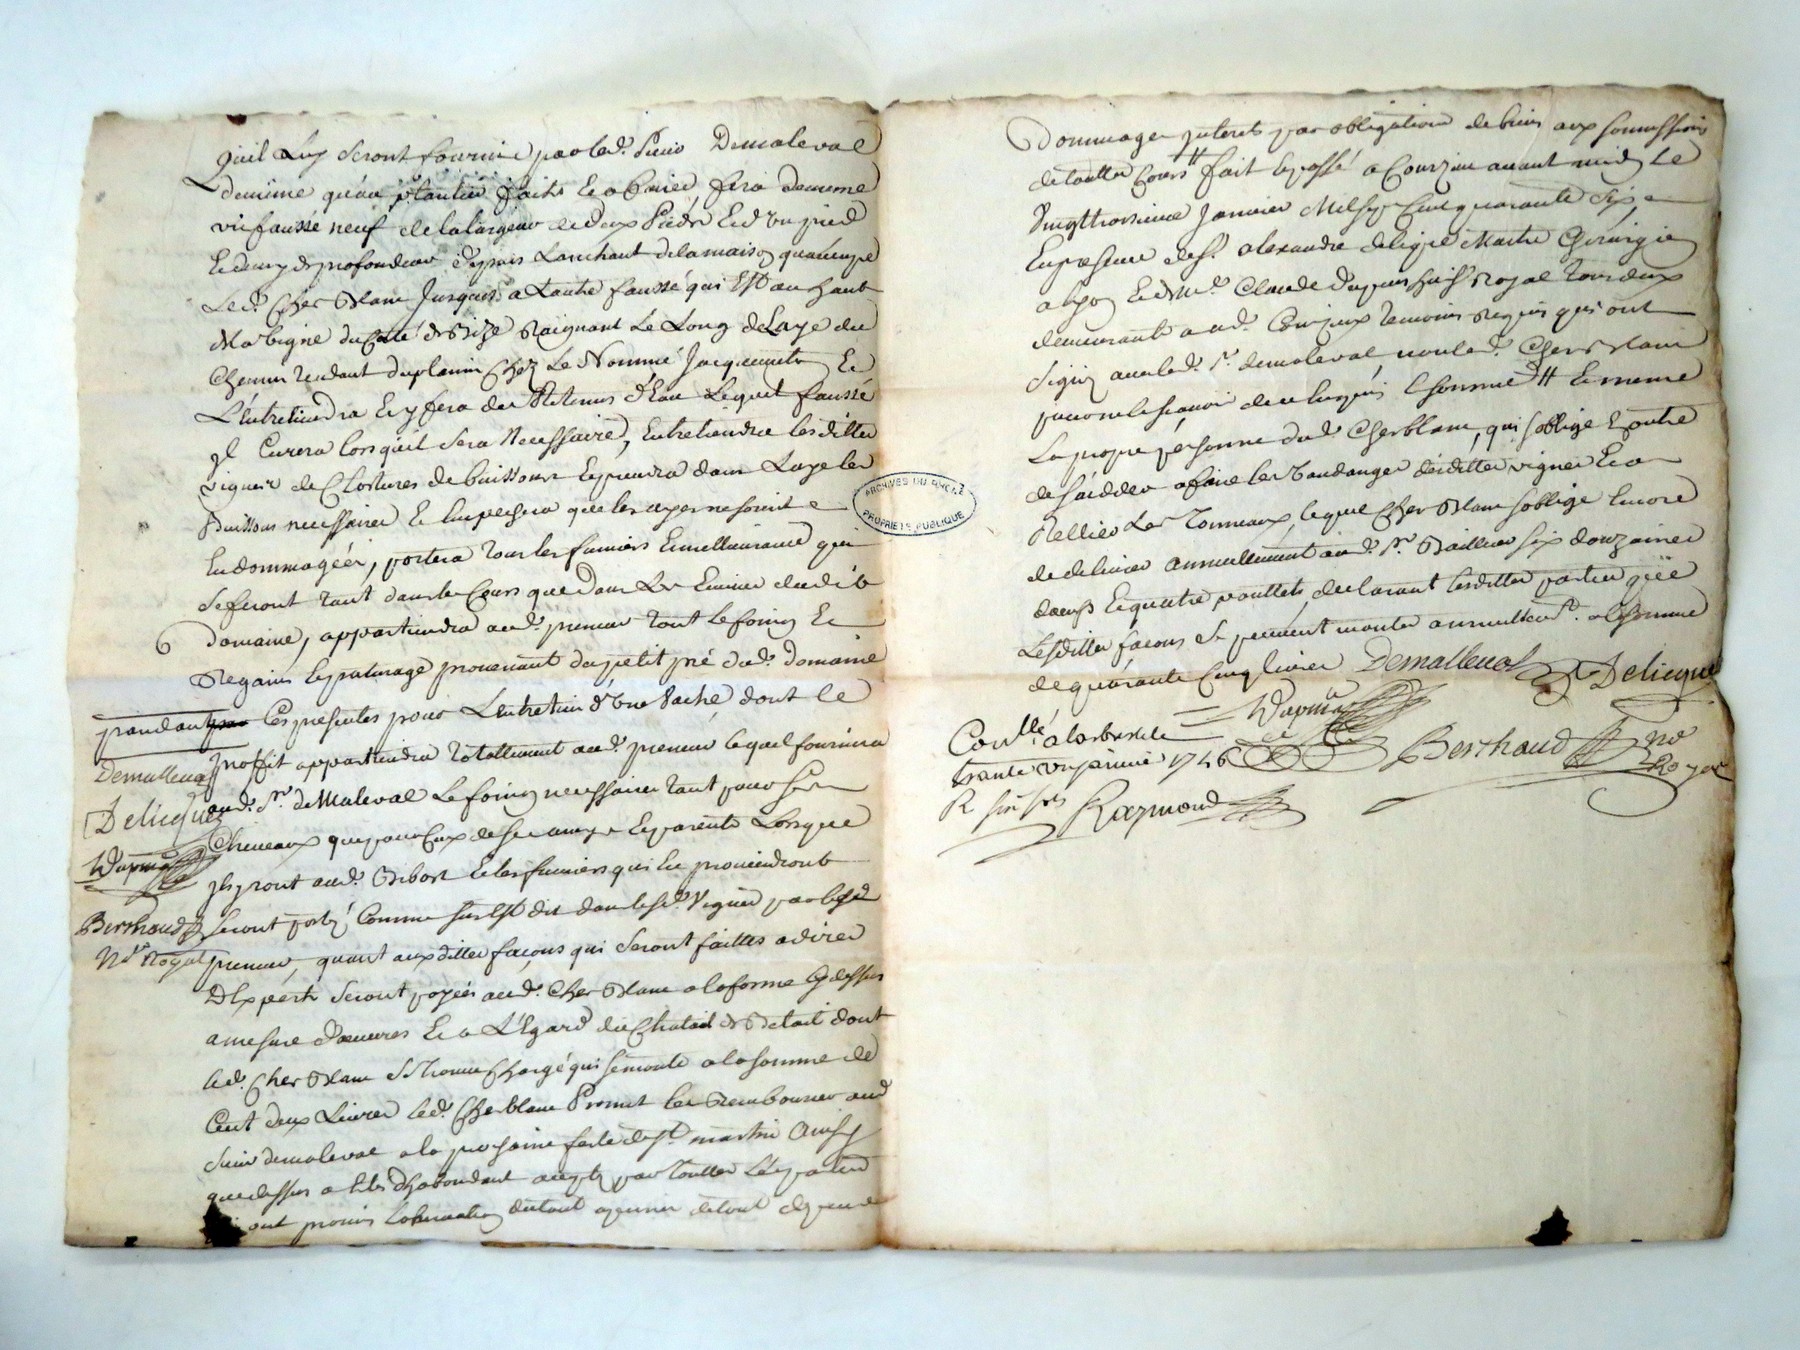 quil Luy seront fournie par led. Sieur Demaleval
demême qu'au plantier faits Et a Cuire fera demême
un faussé neuf de la largeur de deux Pieds Et d'un pied
Et demy de profondeur depuis Larchant de la maison
Led. Cherblanc Jusques a Lautre faussé qui Est au haut
de la vigne du Coté de Bize Le Long de Laye du
Chemin tendant du plannin Chez Le Nommé Jacquemeton Et
L'Entretiendra Et y fera des Retenus d'Eau Lequel faussé
il Curera lorsquil sera Necessaire, Entretiendra lesdittes
vignes de Clostures de buissons Et prendra dans Laye les
Buissons necessaires Et Empechera que les ayes ne soient
Endommagées, portera tous les fumiers Et mellioramens qui
se feront tant dans les Cours que dans Les Ecuries dudit
domaine, appartiendra aud. preneur tout le foing Et
Regains Et paturage provenant du petit pré dud. domaine
pandant Ces presentes pour Lentretien d'Une Vache, dont le
proffit appartiendra totallement aud. preneur lequel fournira
aud. Sr. de Maleval Le foing necessaire tant pour Ses
Chevaux que pour Ceux de ses amys Et parents Lorsque
ils yront aud. Ribost Et les fumiers qui En proviendront
seront portés Comme sus Est dit dans lesd. Vignes par led.
preneur, quant aux dittes façons qui seront faittes a dire
D'Experts seront payées aud. Cherblanc a la forme Cy dessus
a mesure d'oeuvres Et a L'Egard du Chatail de Betail dont
led. Cherblanc se trouve Chargé qui se monte a la somme de
Cent deux Livres led. Cherblanc Promet les Rembourser aud.
Sieur demaleval a la prochaine feste de St. martin Ainsy
que dessus a Esté d'habondant accepté par touttes Les parties
ont promis Lobservation du tout a peine de tout depens
Demalleval
Delicque
Dupuis
Berthaud
Nre. Royal
Dommages Interets par obligation de biens aux soumissions
de touttes Cours # fait Et passé a Courzieu avant midy Le
Vingttroisieme Janvier Mil sept Cent quarante Six,
En presence de sr. alexandre delicque Maitre Chirurgien
a Lyon Et de Me. Claude Dupuis huissr. Royal tous deux
demeurants aud. Courzieux temoins Requis qui ont
signé avec led. Sr. demaleval non led. Cherblanc
pour ne le scavoir de ce Enquis Et sommé # Et meme
La propre personne dud. Cherblanc, qui soblige Et outre
de saidder a faire les Vandanges desdittes vignes Et a
Rellier Les Tonneaux, lequel Cherblanc soblige Encore
de delivrer annuellement aud. Sr. Bailleur six douzaines
doeufs Et quatre poullets, declarant lesdittes parties que
Lesdittes façons se peuvent monter annuellemt. a la somme
de quarante Cinq livres Demalleval Delicque
Dupuis
Berthaud No
Royal
Conllé a Larbresle Le
trante un janvier 1746
R six sols Raymond
ARCHIVES DU RHÔNE
PROPRIÉTÉ PUBLIQUE